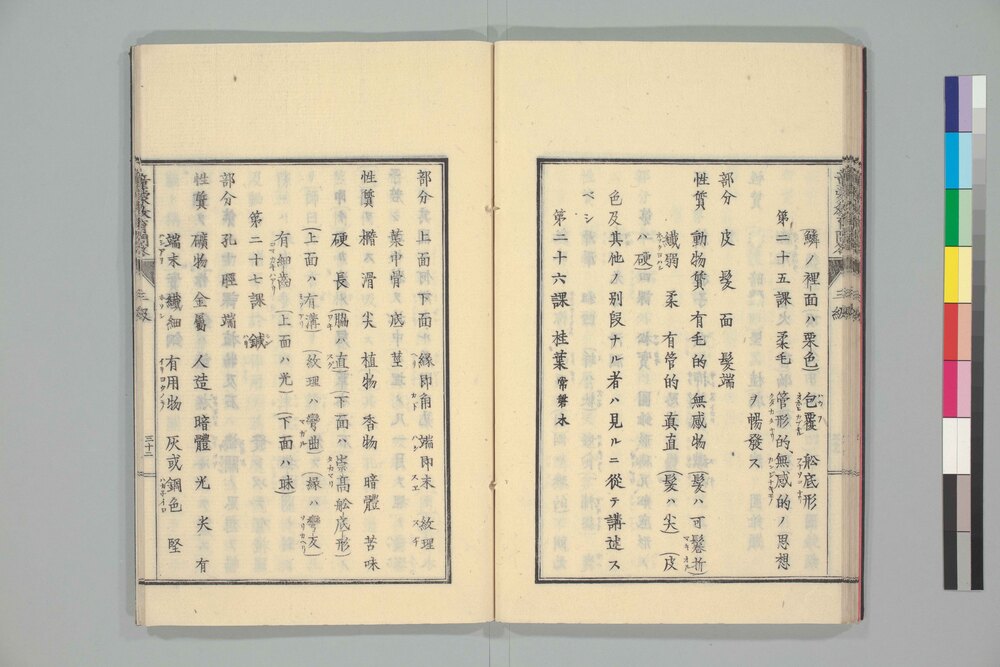 鱗ノ裡面ハ栗色) 包覆 舩底形
第二十五課 柔毛 管形的、無感的ノ思想
ヲ暢發ス
部分 皮 髮 面 髮端
性質 動物質 有毛的 無感物 (髮ハ可鬈折)
纎弱 柔 有管的 忍 真直 (髮ハ尖) (皮
ハ硬)
色及其他ノ別段ナル者ハ見ルニ從テ講述ス
ベシ
第二十六課 桂葉 常磐木
部分 上面 下面 縁即角 端即末 紋理
葉 中骨 底 中莖
性質 橢 滑 尖 植物 香物 暗體 苦味
硬 長 (脇ハ直) (下面ハ崇高舩底形)
(上面ハ有溝) (紋理ハ彎曲) (縁ハ彎反)
有細齒 (上面ハ光) (下面ハ昧)
第二十七課 鍼
部分 孔 脛 端
性質 礦物 金屬 人造 暗體 光 尖 有
端末 纎細 有用物 灰或鋼色 堅
三級
三十二